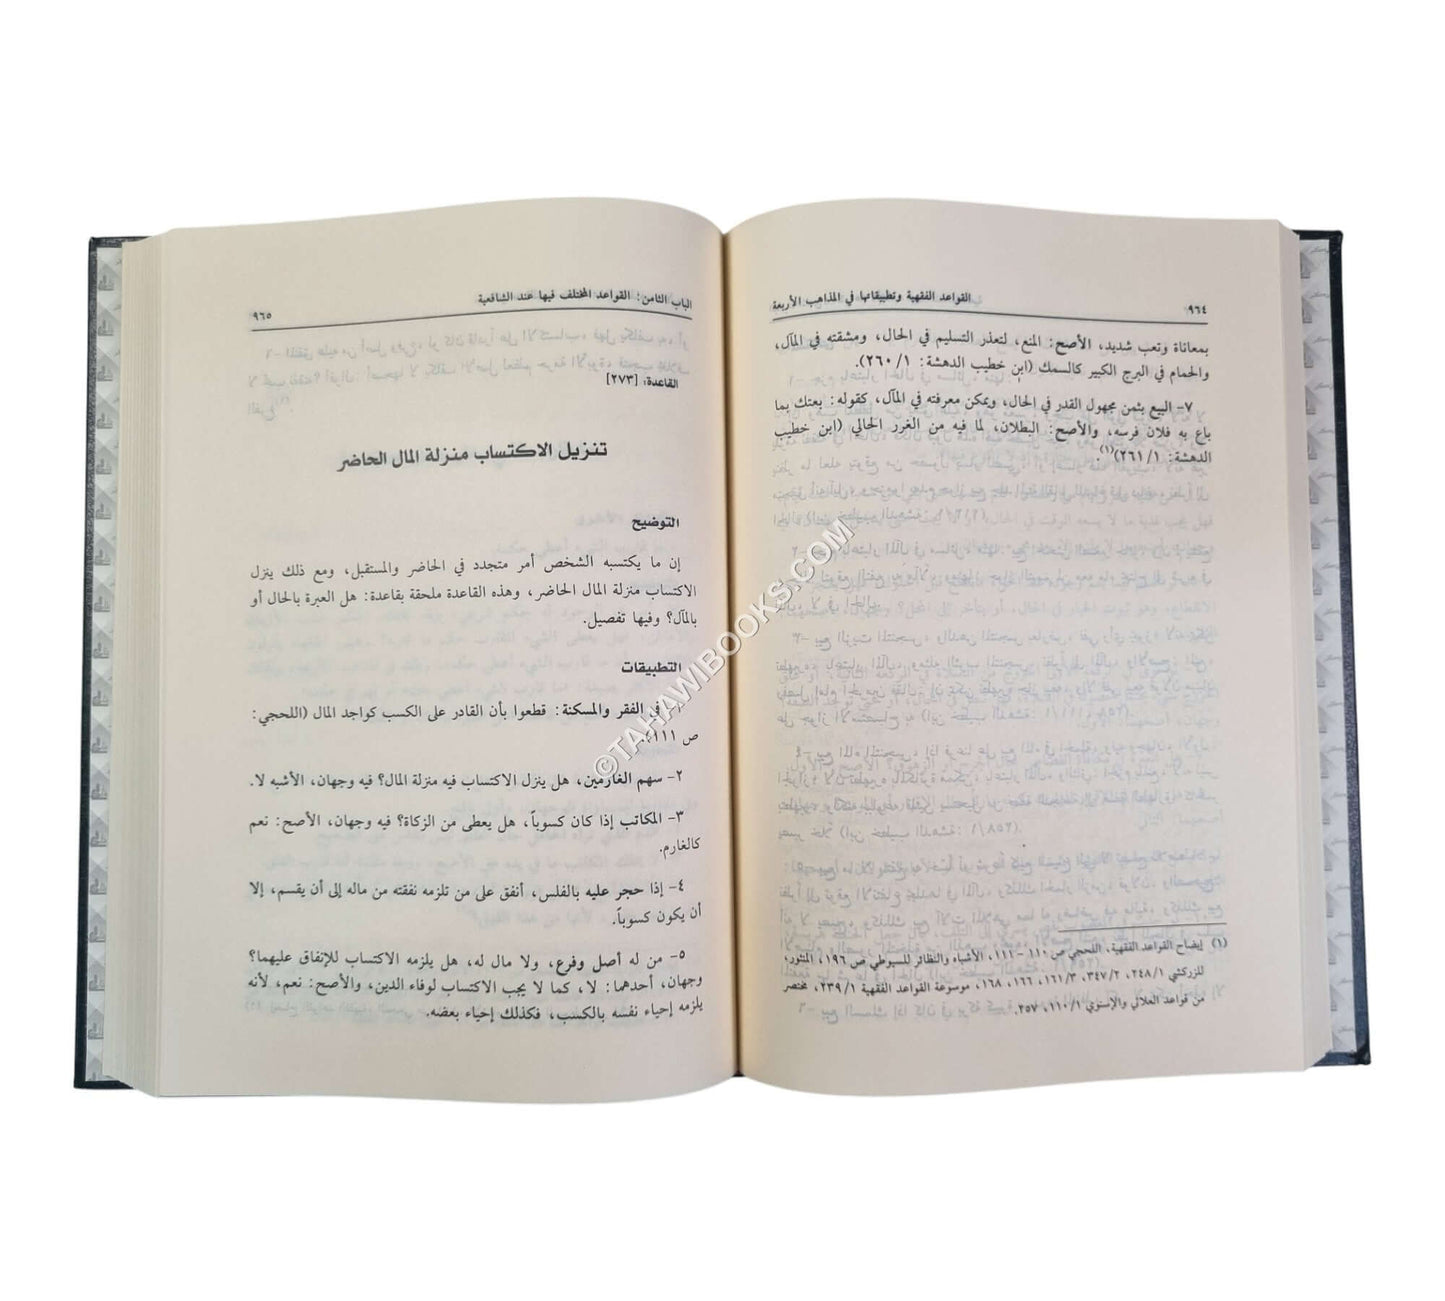 ٩٦٤
القواعد الفقهية وتطبيقاتها في المذاهب الأربعة
بمعاناة وتعب شديد، الأصح: المنع، لتعذر التسليم في الحال، ومشقته في المآل،
والحمام في البرج الكبير كالسمك (ابن خطيب الدهشة: ١/ ٢٦٠).
٧- البيع بثمن مجهول القدر في الحال، ويمكن معرفته في المآل، كقوله: بعتك بما
باع به فلان فرسه، والأصح: البطلان، لما فيه من الغرر الحالي (ابن خطيب
الدهشة: ١/ ٢٦١)(١).
(١) إيضاح القواعد الفقهية، اللحجي ص ١١٠ - ١١١، الأشباه والنظائر للسيوطي ص ١٩٦، المنثور؛
للزركشي ٢٤٨/١، ٣٤٧/٢، ١٦١/٣، ١٦٦، ١٦٨، موسوعة القواعد الفقهية ٢٣٩/١، مختصر
من قواعد العلائي والإسنوي ١١٠/١، ٢٥٧.
الباب الثامن: القواعد المختلف فيها عند الشافعية
٩٦٥
القاعدة: [٢٧٣]
تنزيل الاكتساب منزلة المال الحاضر
التوضيح
إن ما يكتسبه الشخص أمر متجدد في الحاضر والمستقبل، ومع ذلك ينزل
الاكتساب منزلة المال الحاضر، وهذه القاعدة ملحقة بقاعدة: هل العبرة بالحال أو
بالمآل؟ وفيها تفصيل.
التطبيقات
١- في الفقر والمسكنة: قطعوا بأن القادر على الكسب كواجد المال (اللحجي:
ص ١١١).
٢- سهم الغارمين، هل ينزل الاكتساب فيه منزلة المال؟ فيه وجهان، الأشبه لا.
٣- المكاتب إذا كان كسوباً، هل يعطى من الزكاة؟ فيه وجهان، الأصح: نعم
كالغارم.
٤- إذا حجر عليه بالفلس، أنفق على من تلزمه نفقته من ماله إلى أن يقسم، إلا
أن يكون كسوباً.
٥- من له أصل وفرع، ولا مال له، هل يلزمه الاكتساب للإنفاق عليهما؟
وجهان، أحدهما: لا، كما لا يجب الاكتساب لوفاء الدين، والأصح: نعم، لأنه
يلزمه إحياء نفسه بالكسب، فكذلك إحياء بعضه.
©TAHAWIBOOKS.COM